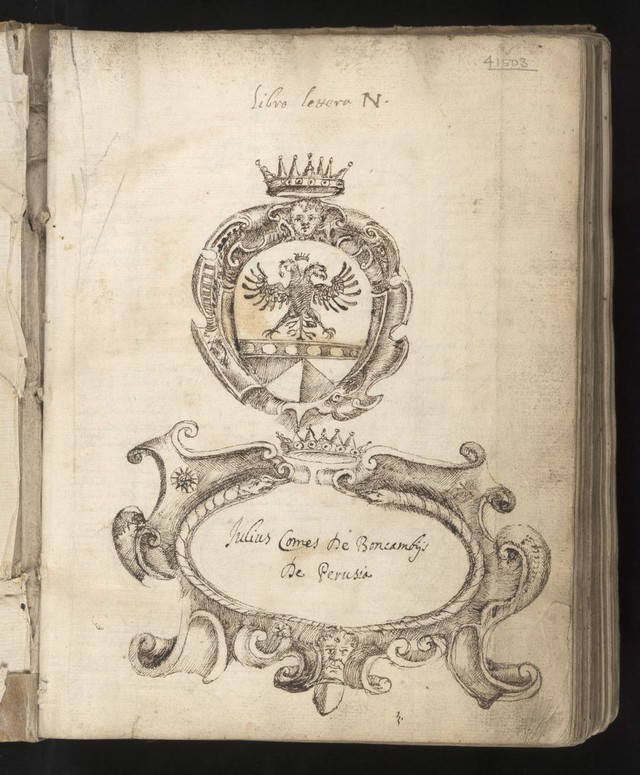 41503
Libro lettera N.
Julius Comes De Boncambijs
De Perusia